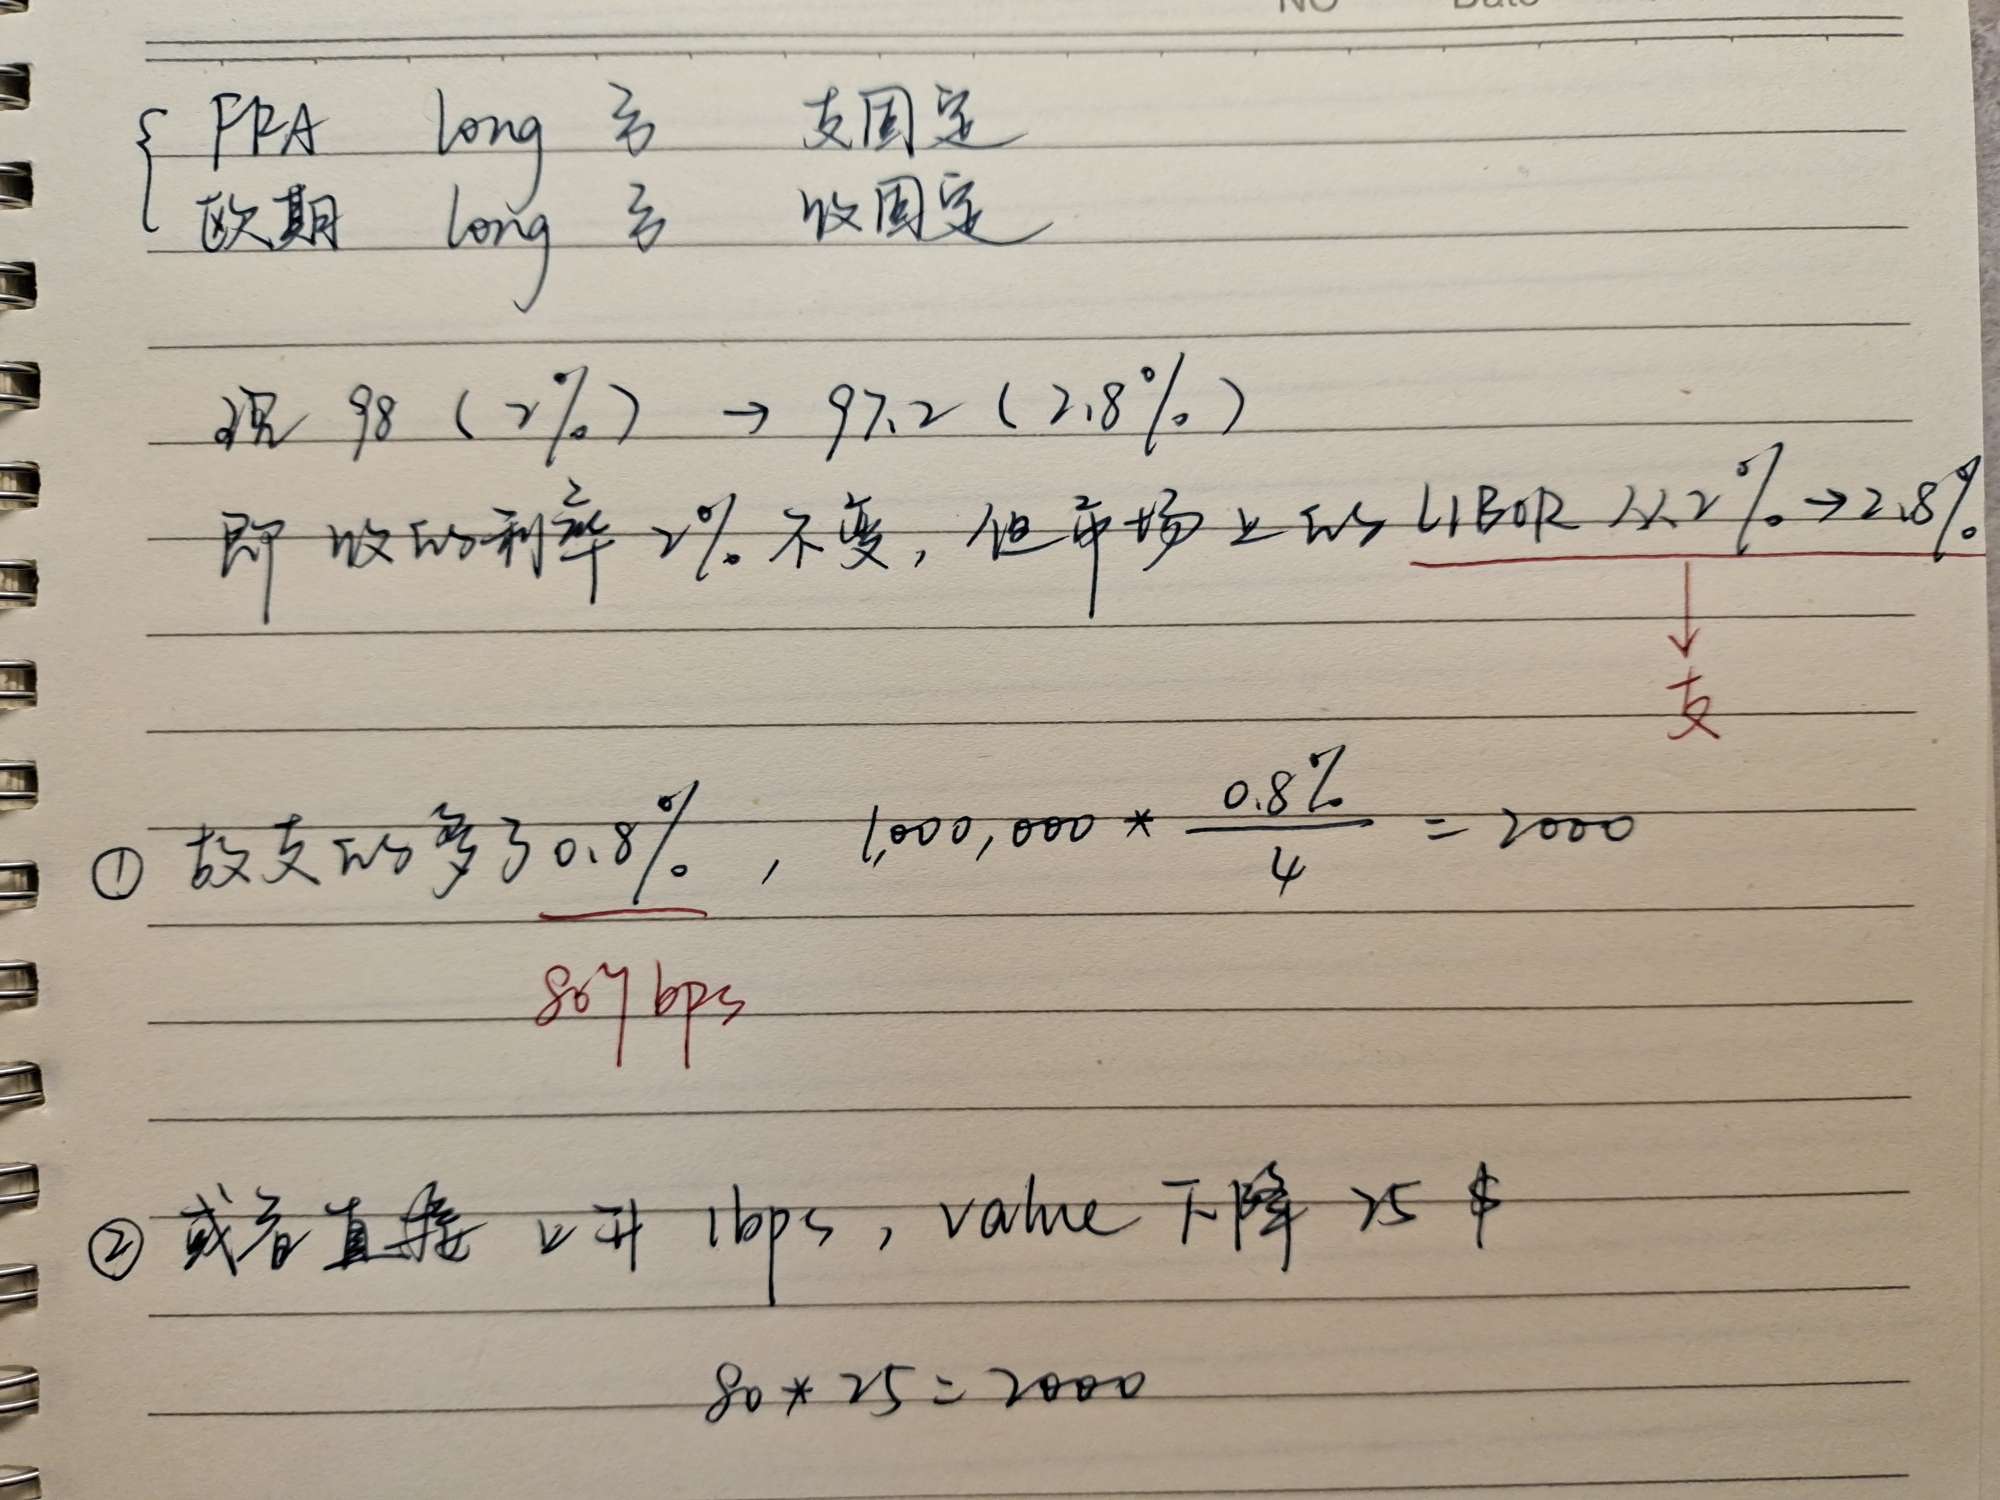 NO Date
{ FRA long 方 支固定
欧期 long 方 收固定
现 98 (2%) → 97.2 (2.8%)
即收的利率2%不变, 但市场上的 LIBOR 从2%→2.8%
↓
支
① 故支的多了0.8%, 1,000,000 * 0.8%/4 = 2000
80个bps
② 或者直接上升 1bps, value 下降 25 $
80*25=2000